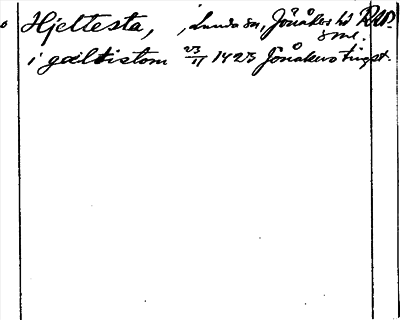 Hjeltesta, , Lunda sn, Jönåkers hd
Sml.
i gæltistom 23/11 1423 Jönåkers tingst.